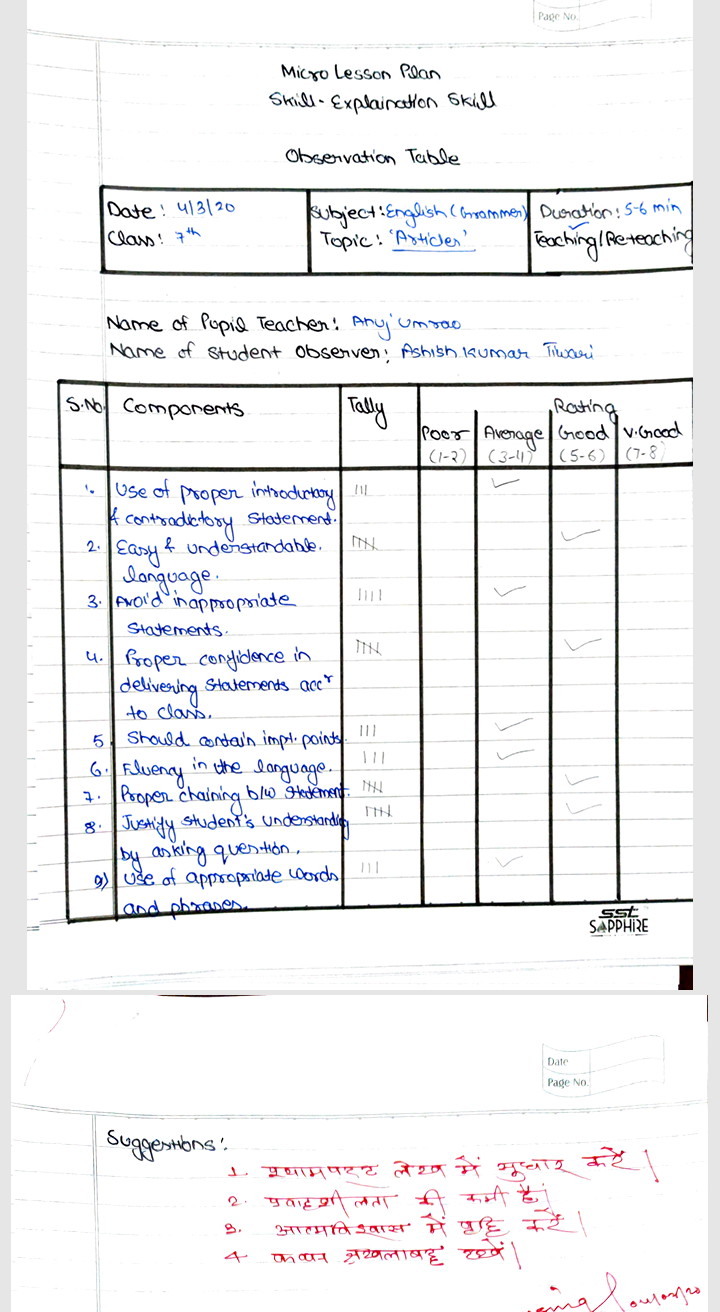 Page No.
Micro Lesson Plan
Skill - Explaination Skill
Observation Table
Date : 4/3/20 Subject : English (Grammer) Duration : 5-6 min
Class : 7th Topic : 'Articles' Teaching/Re-teaching
Name of Pupil Teacher : Anuj Umrao
Name of Student Observer : Ashish Kumar Tiwari
S.No. Components Tally Rating
Poor Average Good V.Good
(1-2) (3-4) (5-6) (7-8)
1. Use of proper introductory
& contradictory Statement.
2. Easy & understandable.
language.
3. Avoid inappropriate
Statements.
4. Proper confidence in
delivering Statements accr
to class.
5. Should contain impt. points.
6. Fluency in the language.
7. Proper chaining b/w Statement.
8. Justify student's understanding
by asking question.
9) Use of appropriate words
and phrases.
SSt
SAPPHIRE
Date
Page No.
Suggestions :
1. श्यामपट्ट लेख में सुधार करें।
2. प्रवाहशीलता की कमी है।
3. आत्मविश्वास में वृद्धि करें।
4 कथन श्रृंखलाबद्ध रखें।